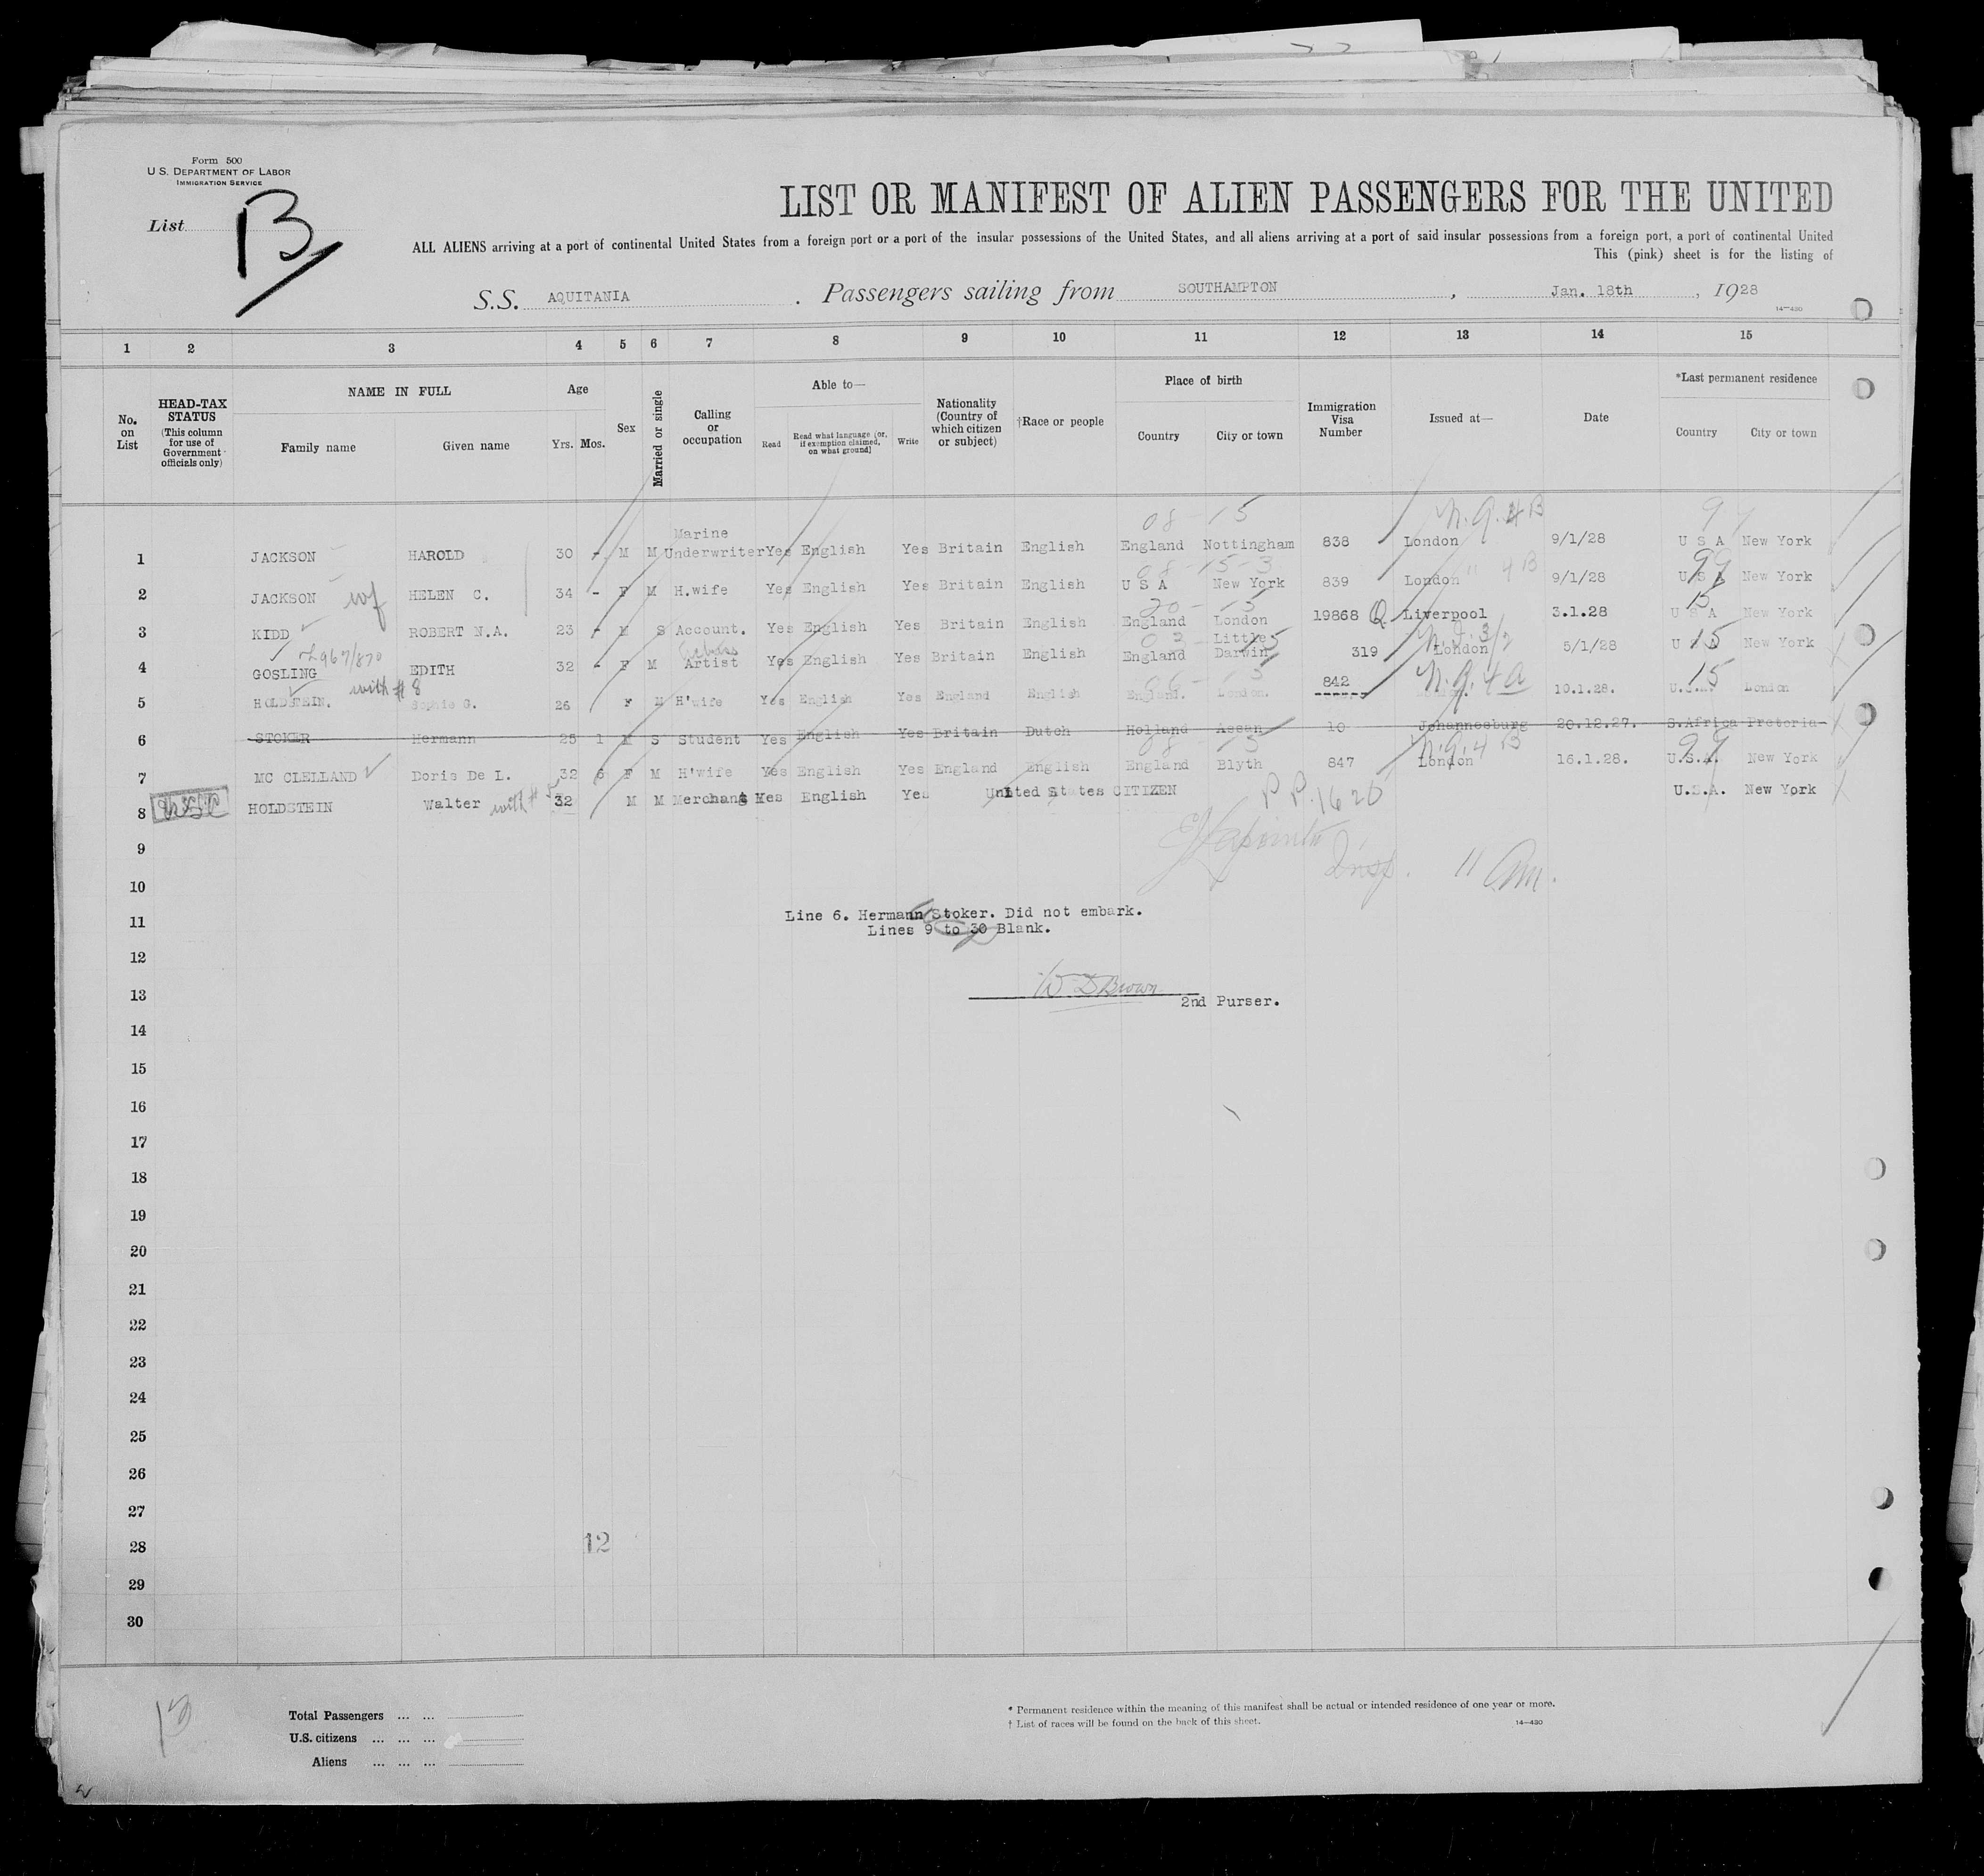 Form 500
U.S. DEPARTMENT OF LABOR
IMMIGRATION SERVICE
List B
LIST OR MANIFEST OF ALIEN PASSENGERS FOR THE UNITED
ALL ALIENS arriving at a port of continental United States from a foreign port or a port of the insular possessions of the United States, and all aliens arriving at a port of said insular possessions from a foreign port, a port of continental United
This (pink) sheet is for the listing of
S.S. AQUITANIA . Passengers sailing from SOUTHAMPTON , Jan. 18th , 1928
14—430
1 2 3 4 5 6 7 8 9 10 11 12 13 14 15
No. on List
HEAD-TAX STATUS (This column for use of Government officials only)
NAME IN FULL
Family name Given name
Age
Yrs. Mos.
Sex
Married or single
Calling or occupation
Able to—
Read Read what language [or, if exemption claimed, on what ground] Write
Nationality (Country of which citizen or subject)
†Race or people
Place of birth
Country City or town
Immigration Visa Number
Issued at—
Date
*Last permanent residence
Country City or town
08 - 15 N.Q. 4B 99
1 JACKSON HAROLD 30 - M M Marine Underwriter Yes English Yes Britain English England Nottingham 838 London 9/1/28 U S A New York
08-15-3 " 4B 99
2 JACKSON wf HELEN C. 34 - F M H.wife Yes English Yes Britain English U S A New York 839 London 9/1/28 U S A New York
20 - 15 15
3 KIDD ROBERT N.A. 23 - M S Account. Yes English Yes Britain English England London 19868 Q Liverpool 3.1.28 U S A New York
967/870
4 GOSLING EDITH 32 - F M Artist Yes English Yes Britain English England Little Darwin 319 London 5/1/28 U S A New York
with # 8 842 N.Q. 4A 15
5 HOLDSTEIN. Sophie G. 26 F M H'wife Yes English Yes England English England. London. 10.1.28. U.S.A. London
6 STOKER Hermann 25 1 M S Student Yes English Yes Britain Dutch Holland Assen 10 Johannesburg 20.12.27. S.Africa Pretoria
08 15 N.Q. 4 B 99
7 MC CLELLAND Doris De L. 32 6 F M H'wife Yes English Yes England English England Blyth 847 London 16.1.28. U.S.A. New York
8 USC HOLDSTEIN Walter with # 5 32 M M Merchant Yes English Yes United States CITIZEN P.P. 1620 U.S.A. New York
9
Insp. 11 Am.
10
11 Line 6. Hermann Stoker. Did not embark.
Lines 9 to 30 Blank.
12
13 W D Brown
2nd Purser.
14
15
16
17
18
19
20
21
22
23
24
25
26
27
28 12
29
30
13
Total Passengers ... ...
U.S. citizens ... ... ...
Aliens ... ... ...
* Permanent residence within the meaning of this manifest shall be actual or intended residence of one year or more.
† List of races will be found on the back of this sheet.
14—430